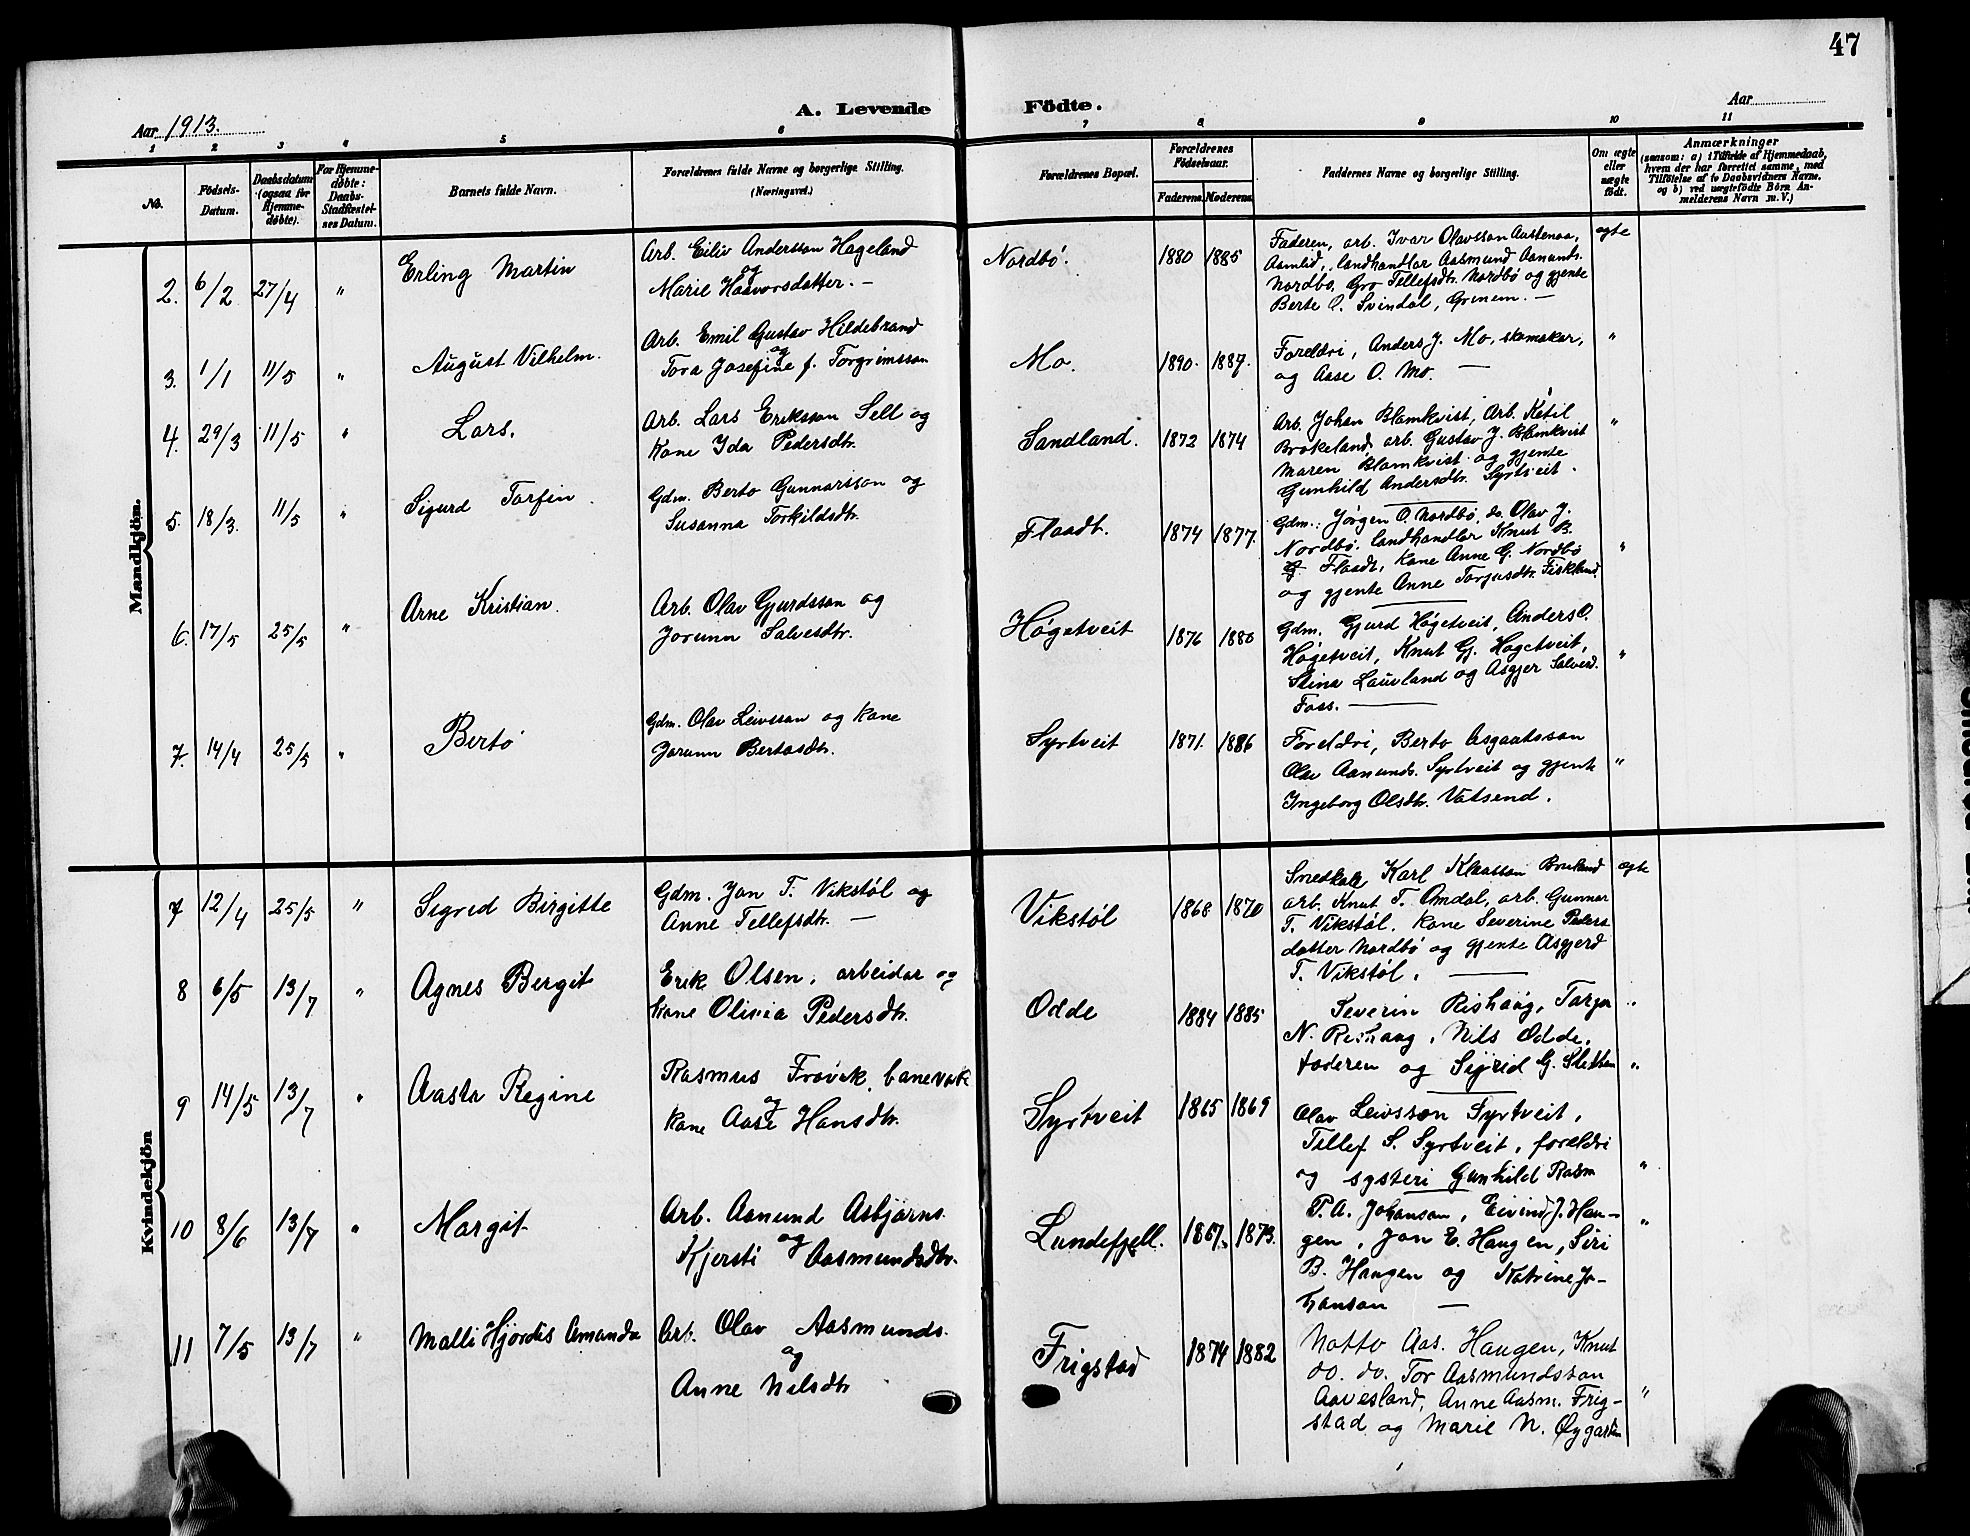 47
A. Levende Födte.
Aar 1913.
Aar
1 2 3 4 5 6 7 8 9 10 11
No.
Födsels-Datum.
Daabsdatum (ogsaa for Hjemme-döbte).
For Hjemme-döbte: Daabs-Stadfæstelses Datum.
Barnets fulde Navn.
Forældrenes fulde Navne og borgerlige Stilling. (Næringsvei.)
Forældrenes Bopæl.
Forældrenes Födselsaar.
Faderens. Moderens.
Faddernes Navne og borgerlige Stilling.
Om ægte eller uægte födt.
Anmærkninger
(saasom: a) i Tilfælde af Hjemmedaab, hvem der har forrettet samme, med Tilföielse af to Daabsvidners Navne, og b) ved uægtefödte Börn Anmelderens Navn m. V.)
Mandkjön.
2. 6/2 27/4 " Erling Martin
Arb. Eiliv Andersson Hageland
og
Marie Haavorsdatter. —
Nordbø. 1880 1885
Faderen, arb. Ivar Olavsson Aastenaa,
Aamlid, landhandlar Aasmund Aanunds.
Nordbø, Gro Tellefsdtr. Nordbø og gjente
Berte O. Svindal, Grenem. —
ægte
3. 1/1 11/5 " August Vilhelm.
Arb. Emil Gustav Hildebrand
og
Tora Josefine f. Torgrimsson
Mo. 1890. 1887.
Foreldri, Anders J. Mo, skomakar,
og Aase O. Mo. —
"
4. 29/3 11/5 " Lars.
Arb. Lars Eriksson Sell og
Kone Ida Pedersdtr.
Sandland. 1872 1874
Arb. Johan Blomkvist, Arb. Ketil
Brokeland, arb. Gustav J. Blomkvist
Maren Blomkvist og gjente
Gunhild Andersdtr. Syrtveit.
"
5. 18/3. 11/5 " Sigurd Torfin.
Gdm. Berto Gunnarsson og
Susanna Torkildsdtr.
Flaadt. 1874 1877.
Gdm.: Jørgen O. Nordbø, do. Olav J.
Nordbø. landhandlar Knut B.
Flaadt, kone Anne G. Nordbø
og gjente Anne Torjusdtr. Fiskland.
"
6. 17/5 25/5 " Arne Kristian.
Arb. Olav Gjurdsson og
Jorunn Salvesdtr.
Høgetveit 1876 1880
Gdm. Gjurd Høgetveit, Anders O.
Høgetveit, Knut Gj. Høgetveit,
Stina Lauvland og Asgjer Salvesd.
Foss. —
"
7. 14/4 25/5 " Berto
Gdm. Olav Leivsson og kone
Jorunn Bertosdtr.
Syrtveit 1871. 1886
Foreldri, Berto Asgautsson
Olav Aanunds. Syrtveit og gjente
Ingeborg Olsdtr. Vatsend.
"
Kvindekjön
7 12/4 25/5 " Sigrid Birgitte
Gdm. Jon T. Vikstøl og
Anne Tellefsdtr. —
Vikstøl 1868 1870
Snedkar Karl Klausson
arb. Knut T. Omdal, arb. Gunnar
T. Vikstøl. Kone Severine Peders
datter Nordbø og gjente Asgjerd
T. Vikstøl. —
ægte
8 6/5 13/7 " Agnes Bergit
Erik Olsen, arbeidar og
kone Olivia Pedersdtr.
Odde 1884 1885
Severin Rishaug, Torjer
N. Rishaug, Nils Odde,
faderen og Sigrid G. Sletten
"
9 14/5 13/7 " Aasta Regine
Rasmus Frøvik, banevakt
og
kone Aase Hansdtr.
Syrtveit 1865 1869
Olav Leivsson Syrtveit,
Tellef S. Syrtveit, foreldri
og systeri Gunhild Rasm
"
10 8/6 13/7 " Margit
Arb. Aanund Asbjørns.
og
Kjersti Aasmundsdtr.
Lundefjell. 1867. 1873.
P.A. Johanson, Eivind J. Hau-
gen, Jon E. Haugen, Siri
B. Haugen og Katrine Jo-
hanson —
"
11 7/5 13/7 " Malli Hjørdis Amanda
Arb. Olav Aasmunds.
og
Anne Nilsdtr
Frigstad 1874 1882
Notto Aas. Haugen, Knut
do. do. Tor Aasmundsson
Aavesland, Anne Aasm. Frig-
stad og Marie N. Øygarden
"